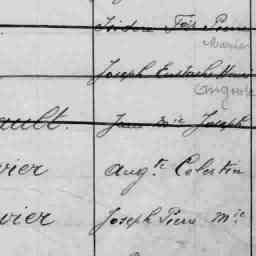 Isidore Fçs Pierre
Joseph Eustache Henri
ault. Jean Mie Joseph
vier Augte Celestin
vier Joseph Pierre Mie